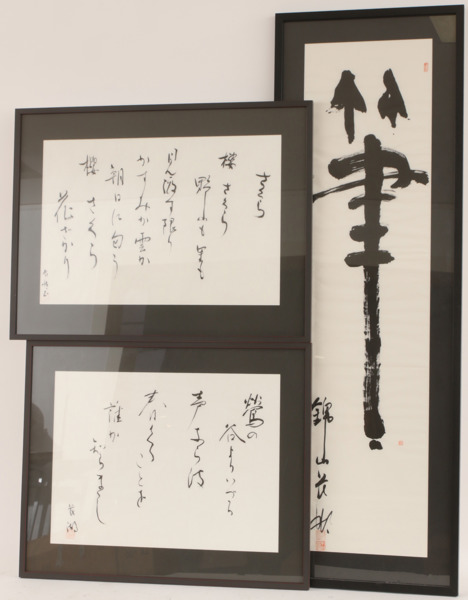 筆
錦山
さくら
櫻 さくら
野山も里も
見渡す限り
かすみか雲か
朝日に匂う
櫻 さくら
花さかり
鶯の
谷よりいづる
声なくは
春くることを
誰か
しらまし
長湖